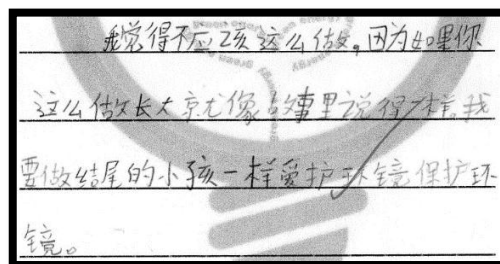 我觉得不应该这么做。因为如果你
这么做长大就像故事里说得一样。我
要做结尾的小孩一样爱护环镜保护环
镜。